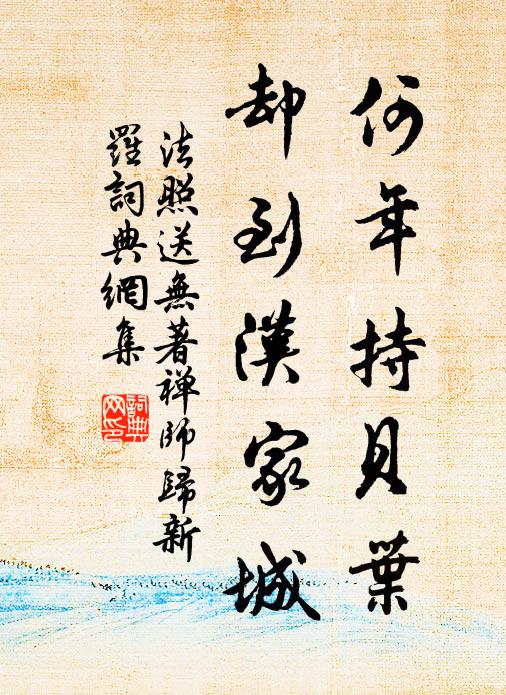 何年持貝葉
却到漢家城
法照送無著禅師歸新
羅詞典網集
詞典
网印